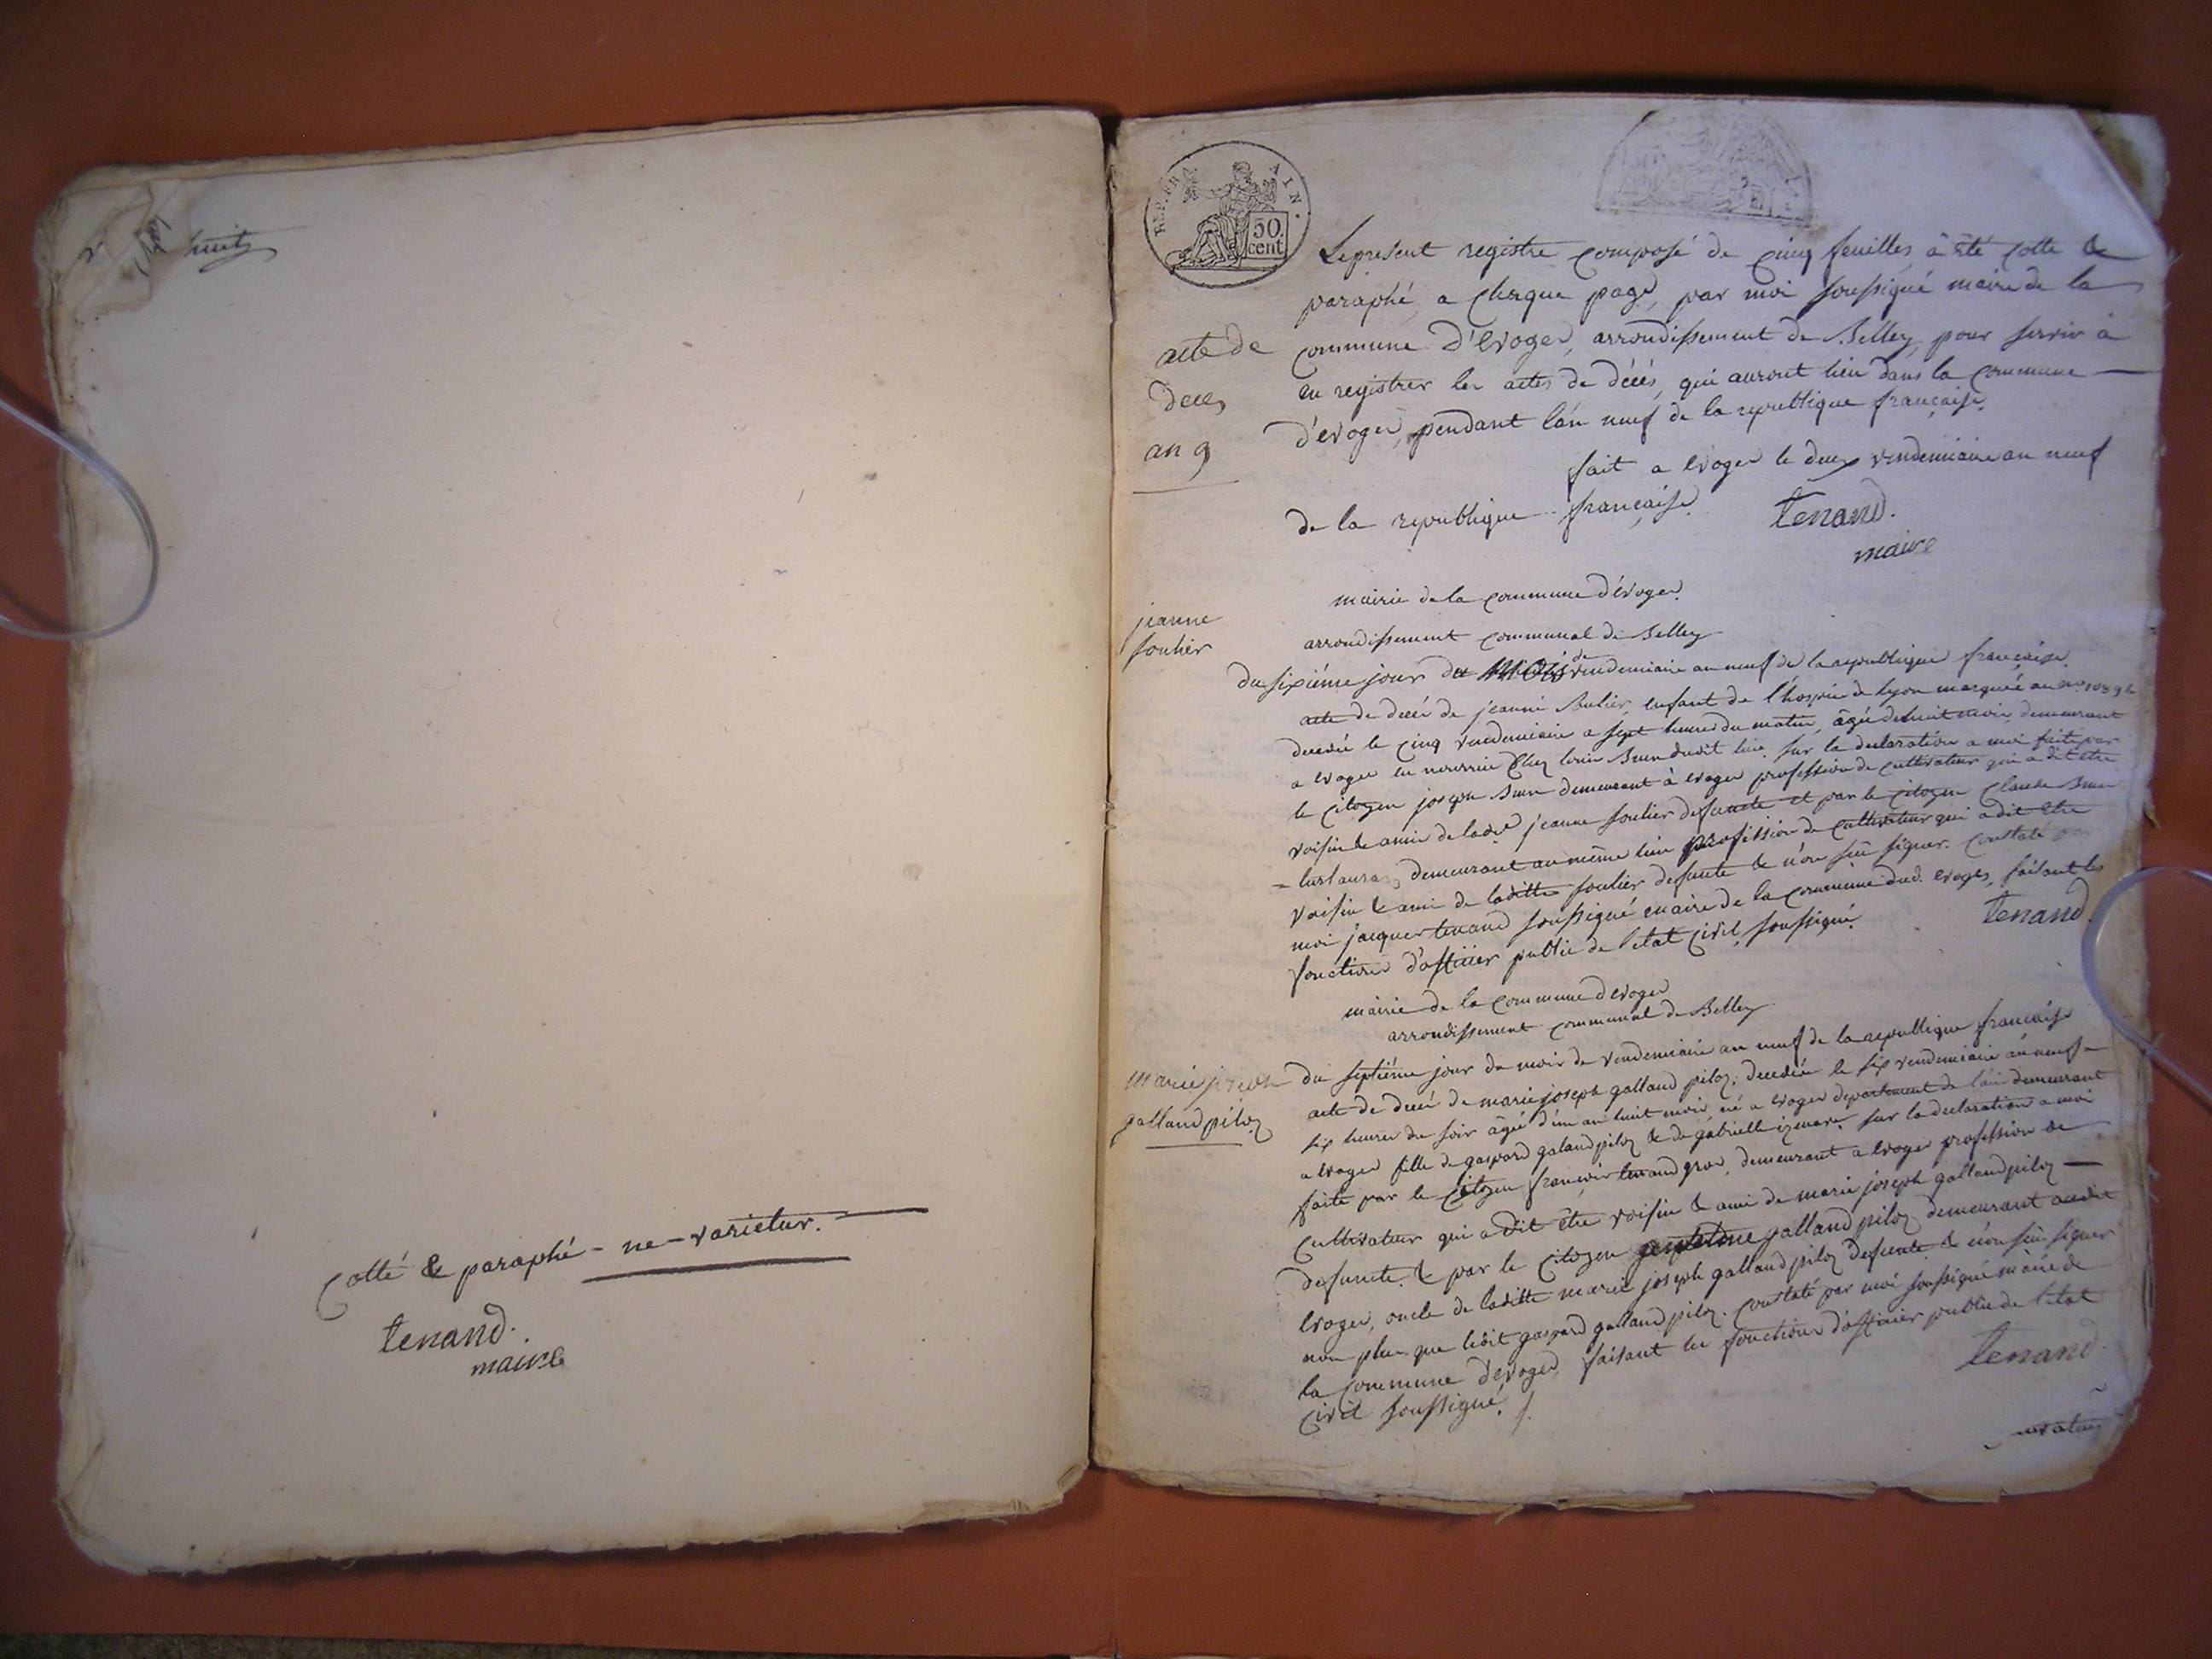 huit
Cotté & paraphé - ne - varietur.
tenand.
maire
REP. FRA. AIN.
50
cent
Le present registre composé de cinq feuilles, à été cotte &
paraphé, a cheque page, par moi soussigné maire de la
commune d'evoges, arrondissement de Belley, pour servir à
en registrer les actes de décés, qui auront lieu dans la commune
d'evoges, pendant l'an neuf de la republique française.
fait a evoges le deux vendemiaire an neuf
de la republique française
tenand.
maire
acte de
deces
an 9
mairie de la commune d'evoges.
arrondissement communal de Belley
jeanne
soulier
du sixiéme jour du mois de vendemiaire an neuf de la republique française.
acte de décés de jeanne soulier, enfant de l'hospice de lyon marquée au
decedée le cinq vendemiaire a sept heures du matin, âgée de huit mois, demeurant
a evoges en nourrice chez dudit lieu, sur la declaration a moi faite par
le citoyen joseph demeurant à evoges profession de cultivateur qui a dit etre
voisin & amie de ladte jeanne soulier defuncte et par le citoyen claude
demeurant au même lieu profession de cultivateur qui a dit etre
voisin & ami de laditte soulier defunte & n'on sü signer. constaté
moi jacques tenand soussigné maire de la commune dud. evoges, faisant les
fonctions d'officier public de l'etat civil, soussigné.
tenand.
mairie de la commune d'evoges
arrondissement communal de Belley
marie joseph
galland piloz
du septiéme jour du mois de vendemiaire an neuf de la republique française
acte de décés de marie joseph galland piloz, decedée le six vendemiaire an neuf a
six heures du soir âgée d'un an huit mois, né a evoges departement de l'ain demeurant
a evoges fille de gaspard galand piloz & de gabrielle sur la declaration a moi
faite par le citoyen françois tenand gros, demeurant a evoges profession de
cultivateur qui a dit être voisin & ami de marie joseph galland piloz
defuncte. & par le citoyen galland piloz demeurant audit
evoges, oncle de laditte marie joseph galland piloz defunte & n'on sü signer
non plus que ledit gaspard galland piloz. constaté par moi soussigné maire de
la commune d'evoges, faisant les fonctions d'officier public de l'etat
civil soussigné.
tenand.